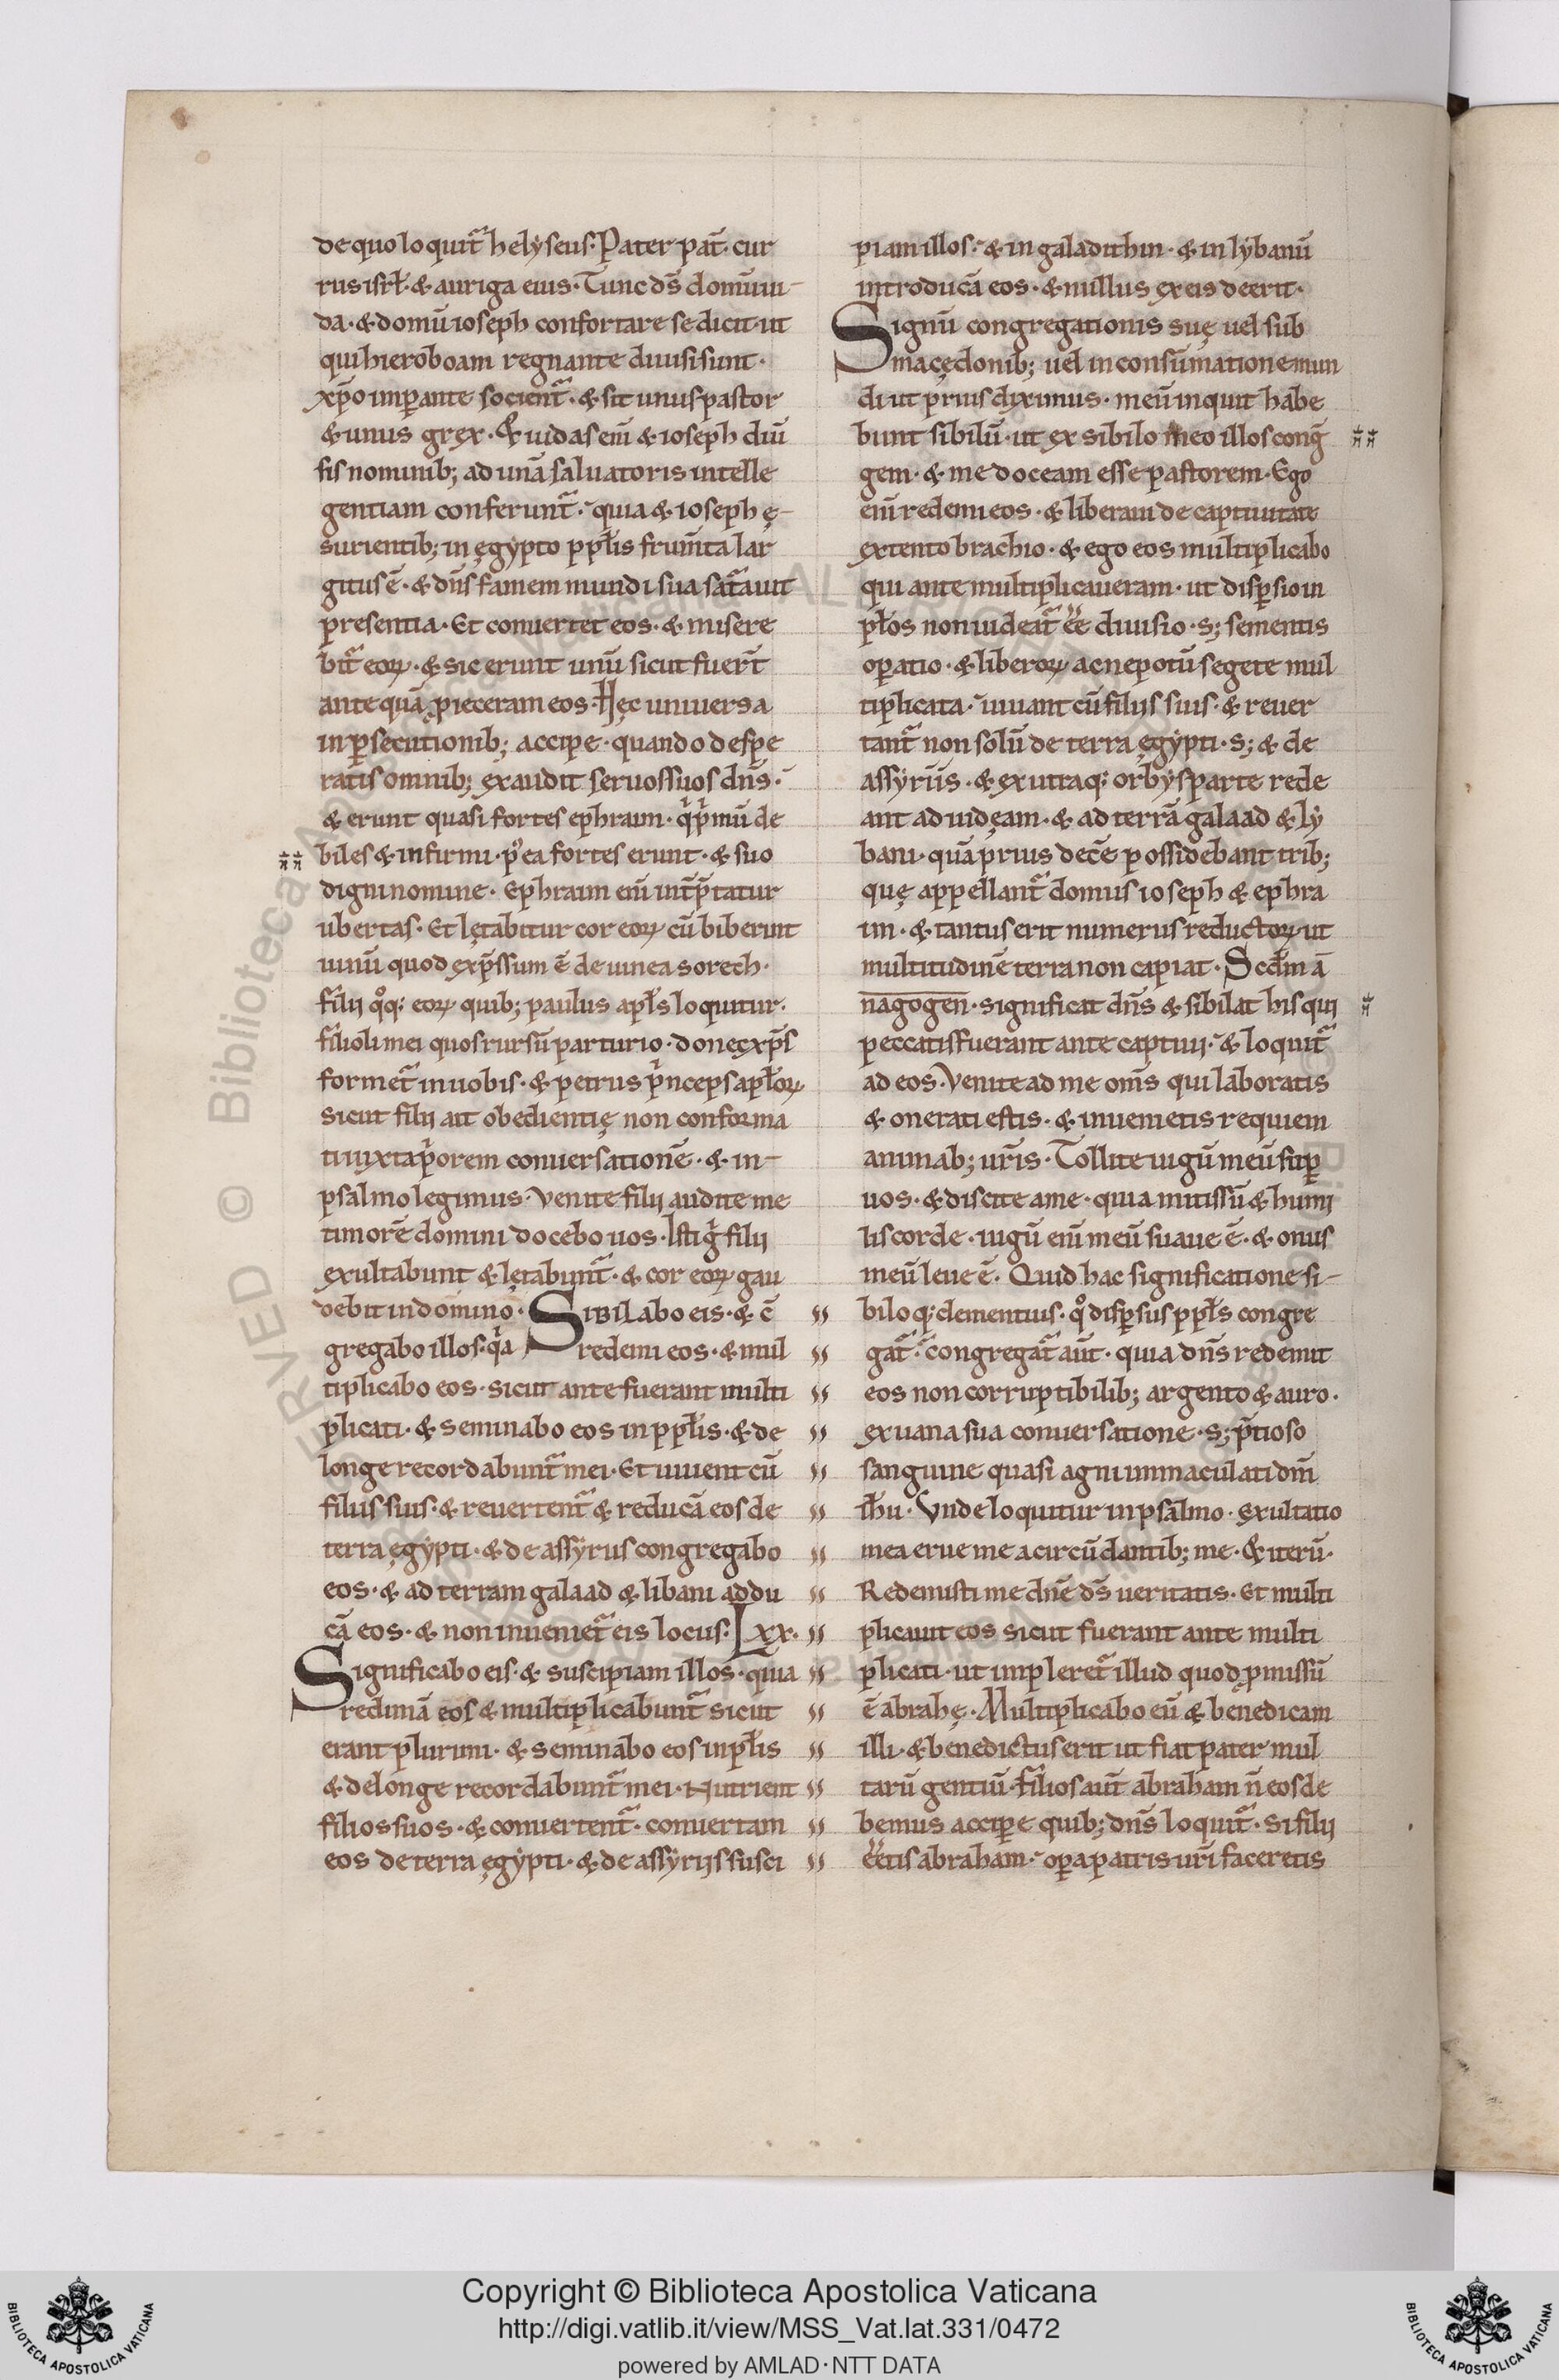 de quo loquit᷒ helyseus. Pater pat̄. cur
rus isrł. & auriga eius. Tunc d̄s domū iu-
da. & domū ioseph confortare se dicit. ut
qui hieroboam regnante diuisi sunt.
xp̄o imꝑante socient᷒. & sit unus pastor
& unus grex. & iudas eni̅ & ioseph diui̅
sis nominib; ad unā saluatoris intelle
gentiam conferunt᷒. quia & ioseph ę-
surientib; in ęgypto pplis̄ frum̄ta lar
gitus ē. & dn̄s famem mundi sua sat᷒auit
presentia. Et conuertet eos. & misere
bit᷒ eoꝝ. & sic erunt unū sicut fuer̄t
ante quā ꝓieceram eos. Hęc uniuersa
in ꝑsecutionib; accipe. quando despe
ratis omnib; exaudit seruos suos dn̄s.
& erunt quasi fortes ephraim. q̇ pͥmū de
biles & infirmi. p᷒ ea fortes erunt. & suo
digni nomine. Ephraim eni̅ int̄p̄tatur
ubertas. Et lętabitur cor eoꝝ cū biberint
uinū quod exp̄ssum ē de uinea sorech.
filii qͦq; eoꝝ quib; paulus apłs loquitur.
filioli mei quos rursū parturio. donec xp̄s
formet᷒ in uobis. & petrus pͥnceps apłoꝝ
sicut filii ait obedientię non conforma
ti iuxta pͥorem conuersationē. & in-
psalmo legimus. Venite filii audite me
timorē domini docebo uos. Isti gͥ filii
exultabunt & lętabunt᷒. & cor eoꝝ gau
debit in domino. Sibilabo eis. & c̄
gregabo illos. qͥa redemi eos. & mul
tiplicabo eos. sicut ante fuerant multi
plicati. & seminabo eos in ppłis. & de
longe recordabunt᷒ mei. Et uiuent cū
filiis suis. & reuertent᷒ & reducā eos de
terra ęgypti. & de assyriis congregabo
eos. & ad terram galaad & libani addu
cā eos. & non inueniet᷒ eis locus. Lxx.
Significabo eis. & suscipiam illos. quia
redimā eos & multiplicabunt᷒ sicut
erant plurimi. & seminabo eos in płis
& de longe recordabunt᷒ mei. Nutrient
filios suos. & conuertent᷒. conuertam
eos de terra ęgypti. & de assyriis susci
piam illos. & in galadithin. & in lybanū
introducā eos. & nullus ex eis deerit.
Signū congregationis suę uel sub
macędonib; uel in consūmatione mun
di ut prius diximus. meū inquit habe
bunt sibilū. ut ex sibilo meo illos cong̅
gem. & me doceam esse pastorem. Ego
eni̅ redemi eos. & liberaui de captiuitate
extento brachio. & ego eos multiplicabo
qui ante multiplicaueram. ut disꝑsio in
płos non uideat᷒ ēē diuisio. s; sementis
oꝑatio. & liberoꝝ ac nepotū segete mul
tiplicata. uiuant cū filiis suis. & reuer
tant᷒ non solū de terra ęgypti. s; & de
assyriis. & ex utraq; orbys parte rede
ant ad iudęam. & ad terrā galaad & ly
bani. quā prius decē possidebant trib;
quę appellant᷒ domus ioseph & ephra
im. & tantus erit numerus reductoꝝ. ut
multitudinē terra non capiat. Scd̄m ā
nagogen. significat dn̄s & sibilat his qui
peccatis fuerant ante captiui. & loquit᷒
ad eos. Venite ad me om̄s qui laboratis
& onerati estis. & inuenietis requiem
animab; ur̄is. Tollite iugū meū suꝑ
uos. & discite a me. quia mitis sū & humi
lis corde. iugū eni̅ meū suaue ē. & onus
meū leue ē. Quid hac significatione si-
biloq; clementius. qͦ disꝑsus ppłs congre
gat᷒. congregat᷒ aūt. quia dn̄s redemit
eos non corruptibilib; argento & auro.
ex uana sua conuersatione. s; p̄tioso
sanguine quasi agni immaculati dn̄i
ih̄u. Vnde loquitur in psalmo. Exultatio
mea erue me a circūdantib; me. & iterū.
Redemisti me dn̄e d̄s ueritatis. Et multi
plicauit eos sicut fuerant ante multi
plicati. ut impleret᷒ illud quod ꝓmissū
ē abrahę. Multiplicabo eū & benedicam
illi. & benedictus erit ut fiat pater mul
tarū gentiū. filios aūt abraham n̄ eos de
bemus acciꝑe quib; dn̄s loquit᷒. Si filii
eētis abraham. oꝑa patris ur̄i faceretis
Copyright © Biblioteca Apostolica Vaticana
http://digi.vatlib.it/view/MSS_Vat.lat.331/0472
powered by AMLAD · NTT DATA
BIBLIOTECA APOSTOLICA VATICANA
BIBLIOTECA APOSTOLICA VATICANA